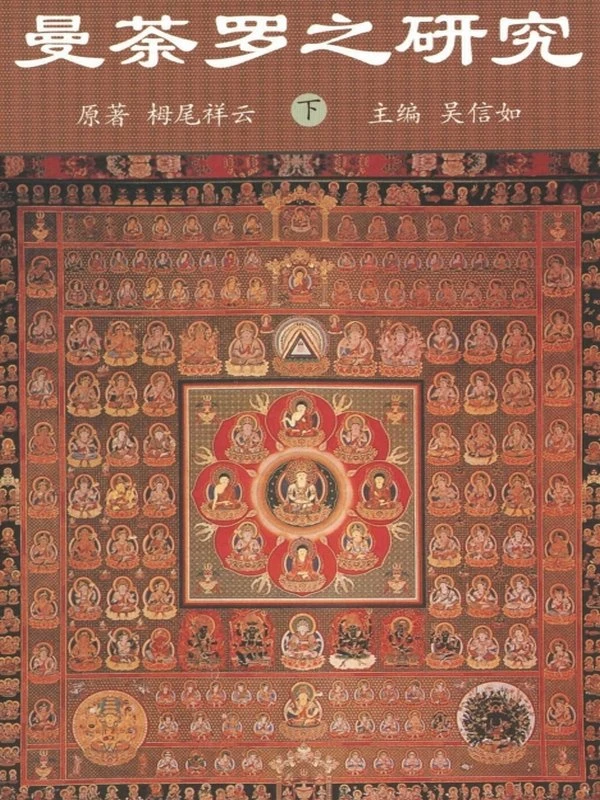 曼荼罗之研究
原著 栂尾祥云 下 主编 吴信如